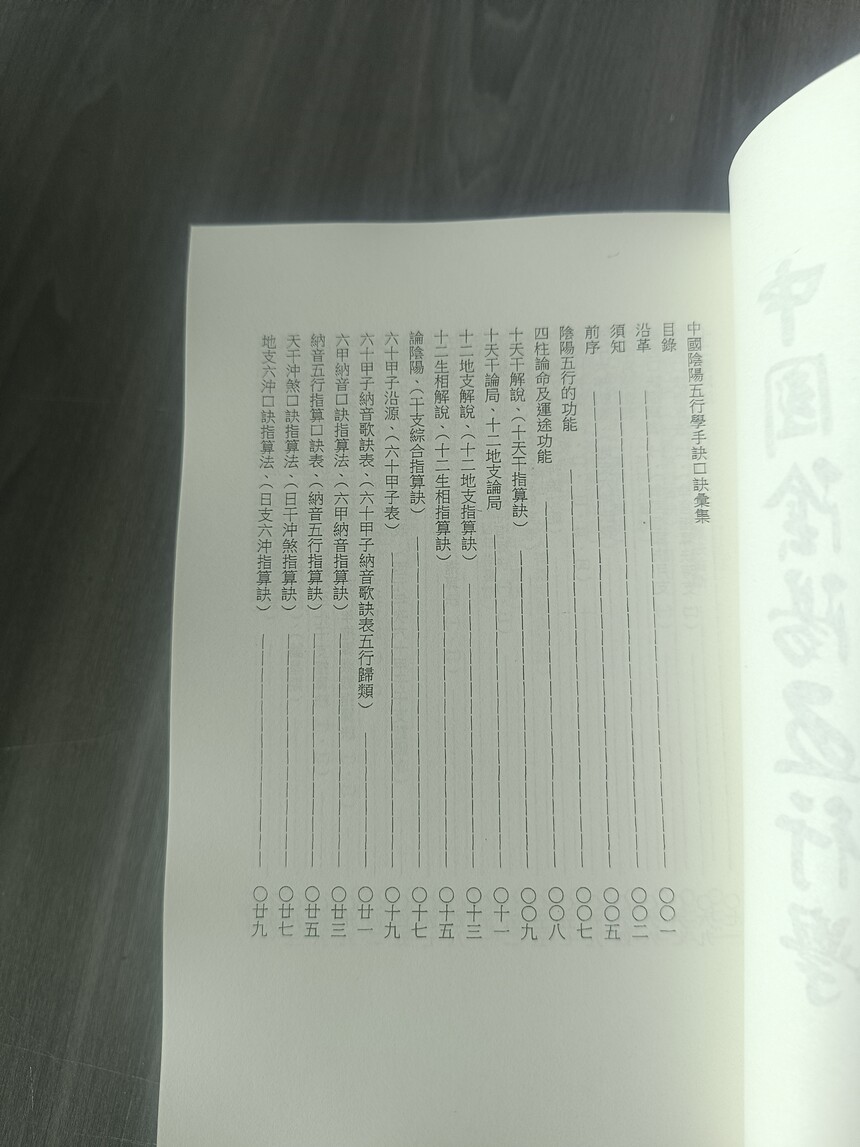 中國陰陽五行學
中國陰陽五行學手訣口訣彙集
目錄
沿革 〇〇一
須知 〇〇二
前序 〇〇五
陰陽五行的功能 〇〇七
四柱論命及運途功能 〇〇八
十天干解說、(十天干指算訣) 〇〇九
十天干論局、十二地支論局 〇十一
十二地支解說、(十二地支指算訣) 〇十三
十二生相解說、(十二生相指算訣) 〇十五
論陰陽、(干支綜合指算訣) 〇十七
六十甲子沿源、(六十甲子表) 〇十九
六十甲子納音歌訣表、(六十甲子納音歌訣表五行歸類) 〇廿一
六甲納音口訣指算法、(六甲納音指算訣) 〇廿三
納音五行指算口訣表、(納音五行指算訣) 〇廿五
天干沖煞口訣指算法、(日干沖煞指算訣) 〇廿七
地支六沖口訣指算法、(日支六沖指算訣) 〇廿九